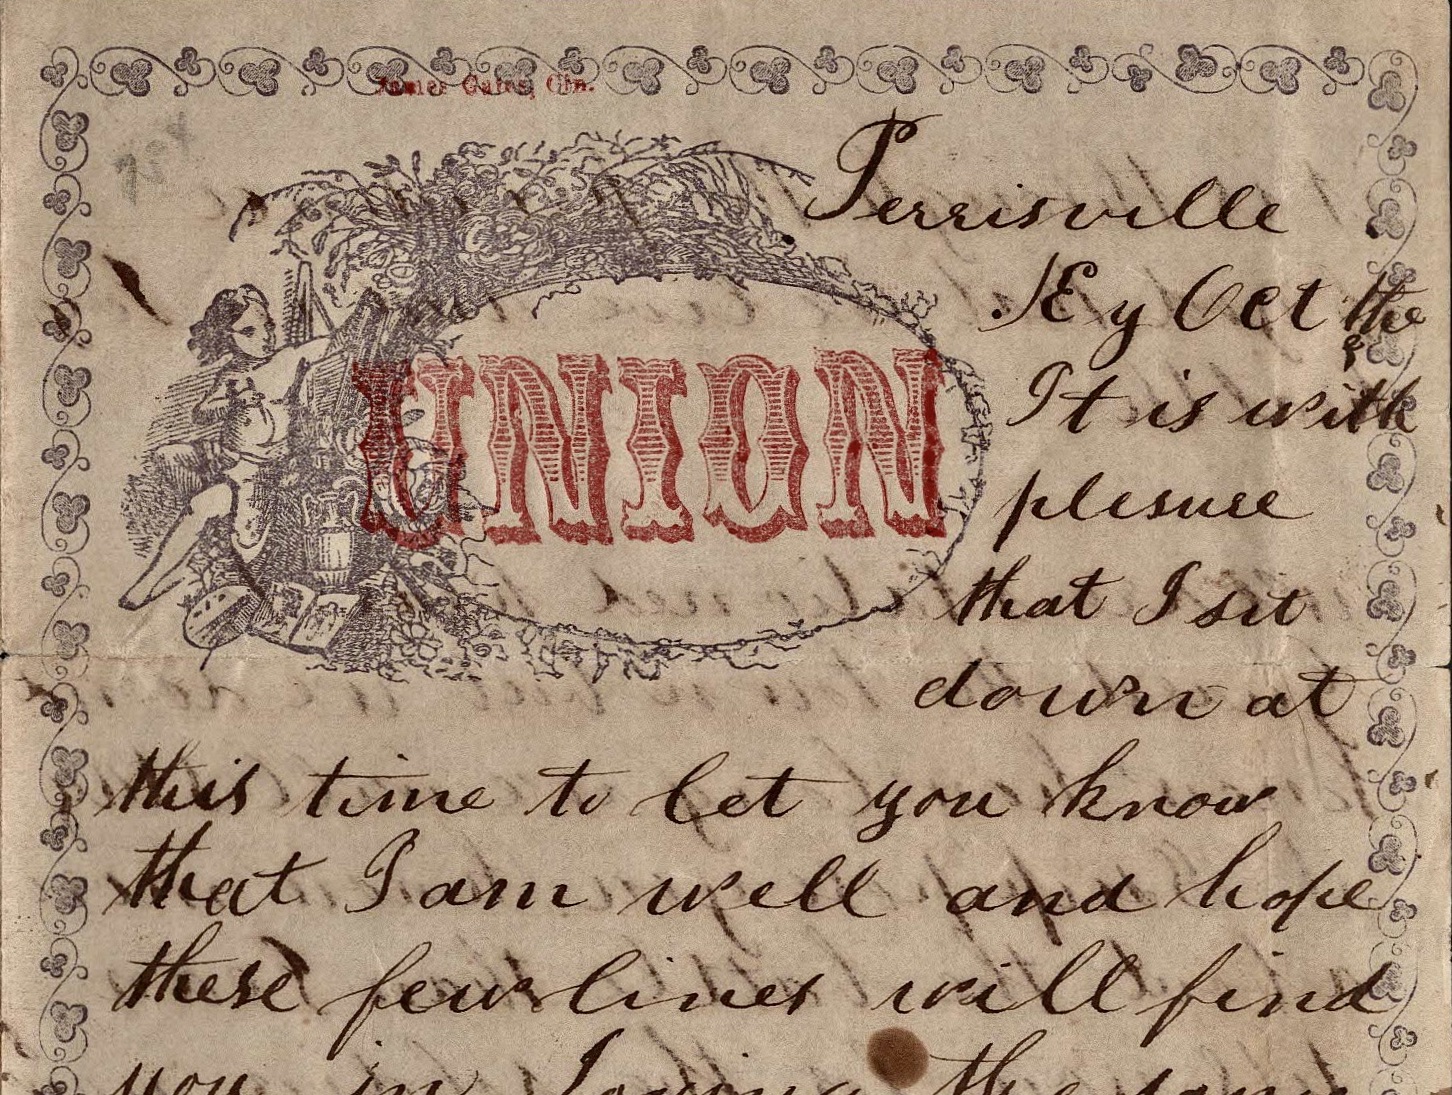 James Gates, Cin.
UNION
Perrisville
KEy Oct the
8
It is with
plesure
that I sit
down at
this time to let you know
that I am well and hope
these few lines will find
you in the same